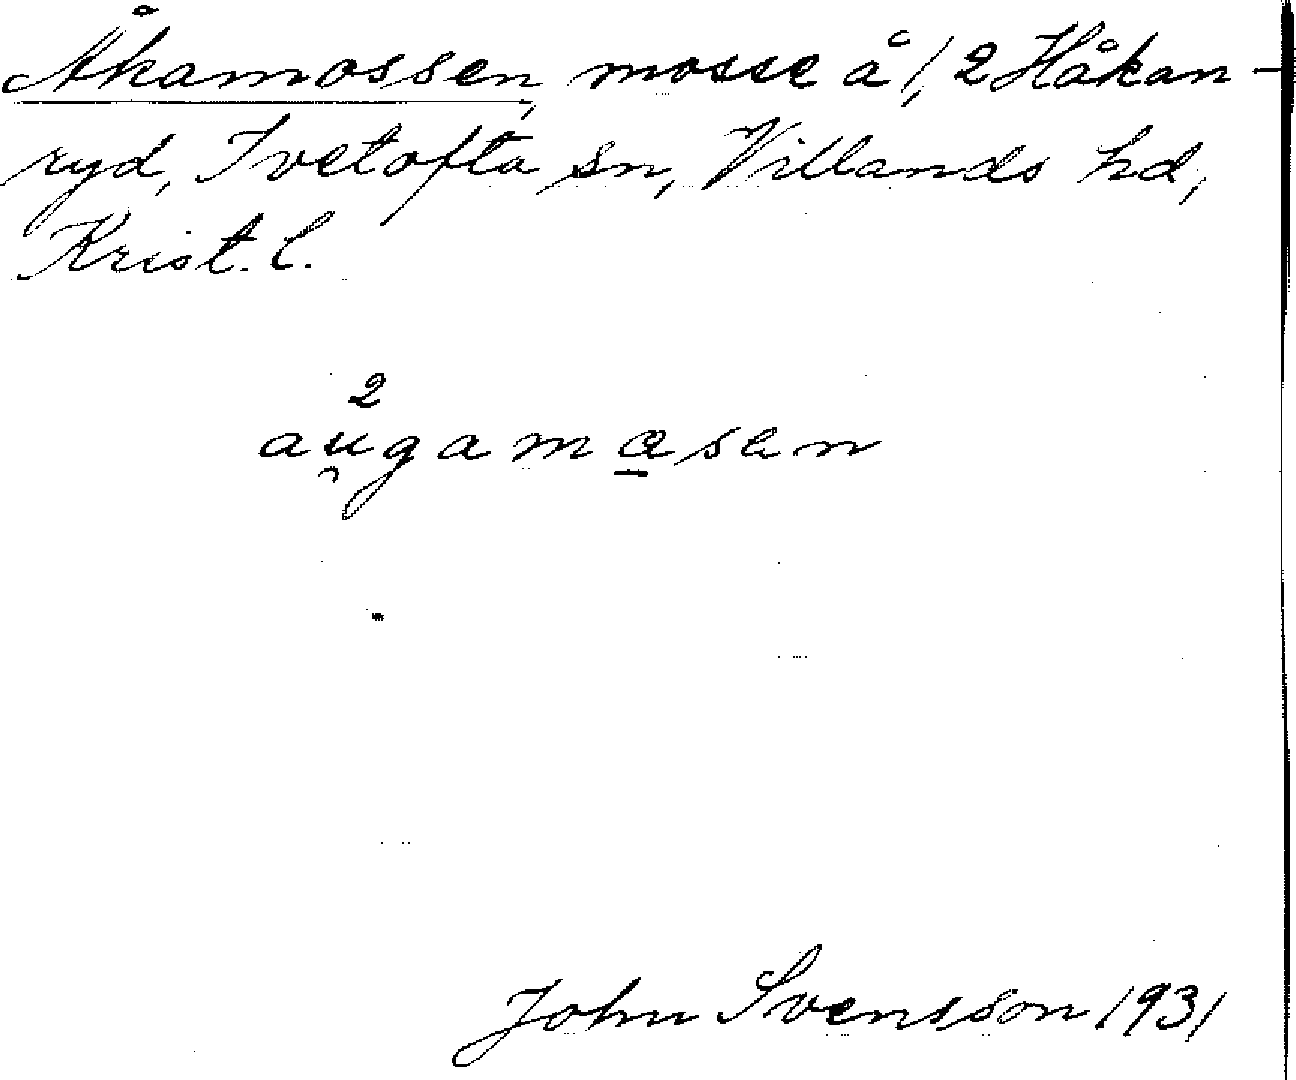 Åkamossen, mosse å 1, 2 Håkan-
ryd, Ivetofta sn, Villands hd,
Krist. l.
2
au̯gama̱sen
John Svensson 1931